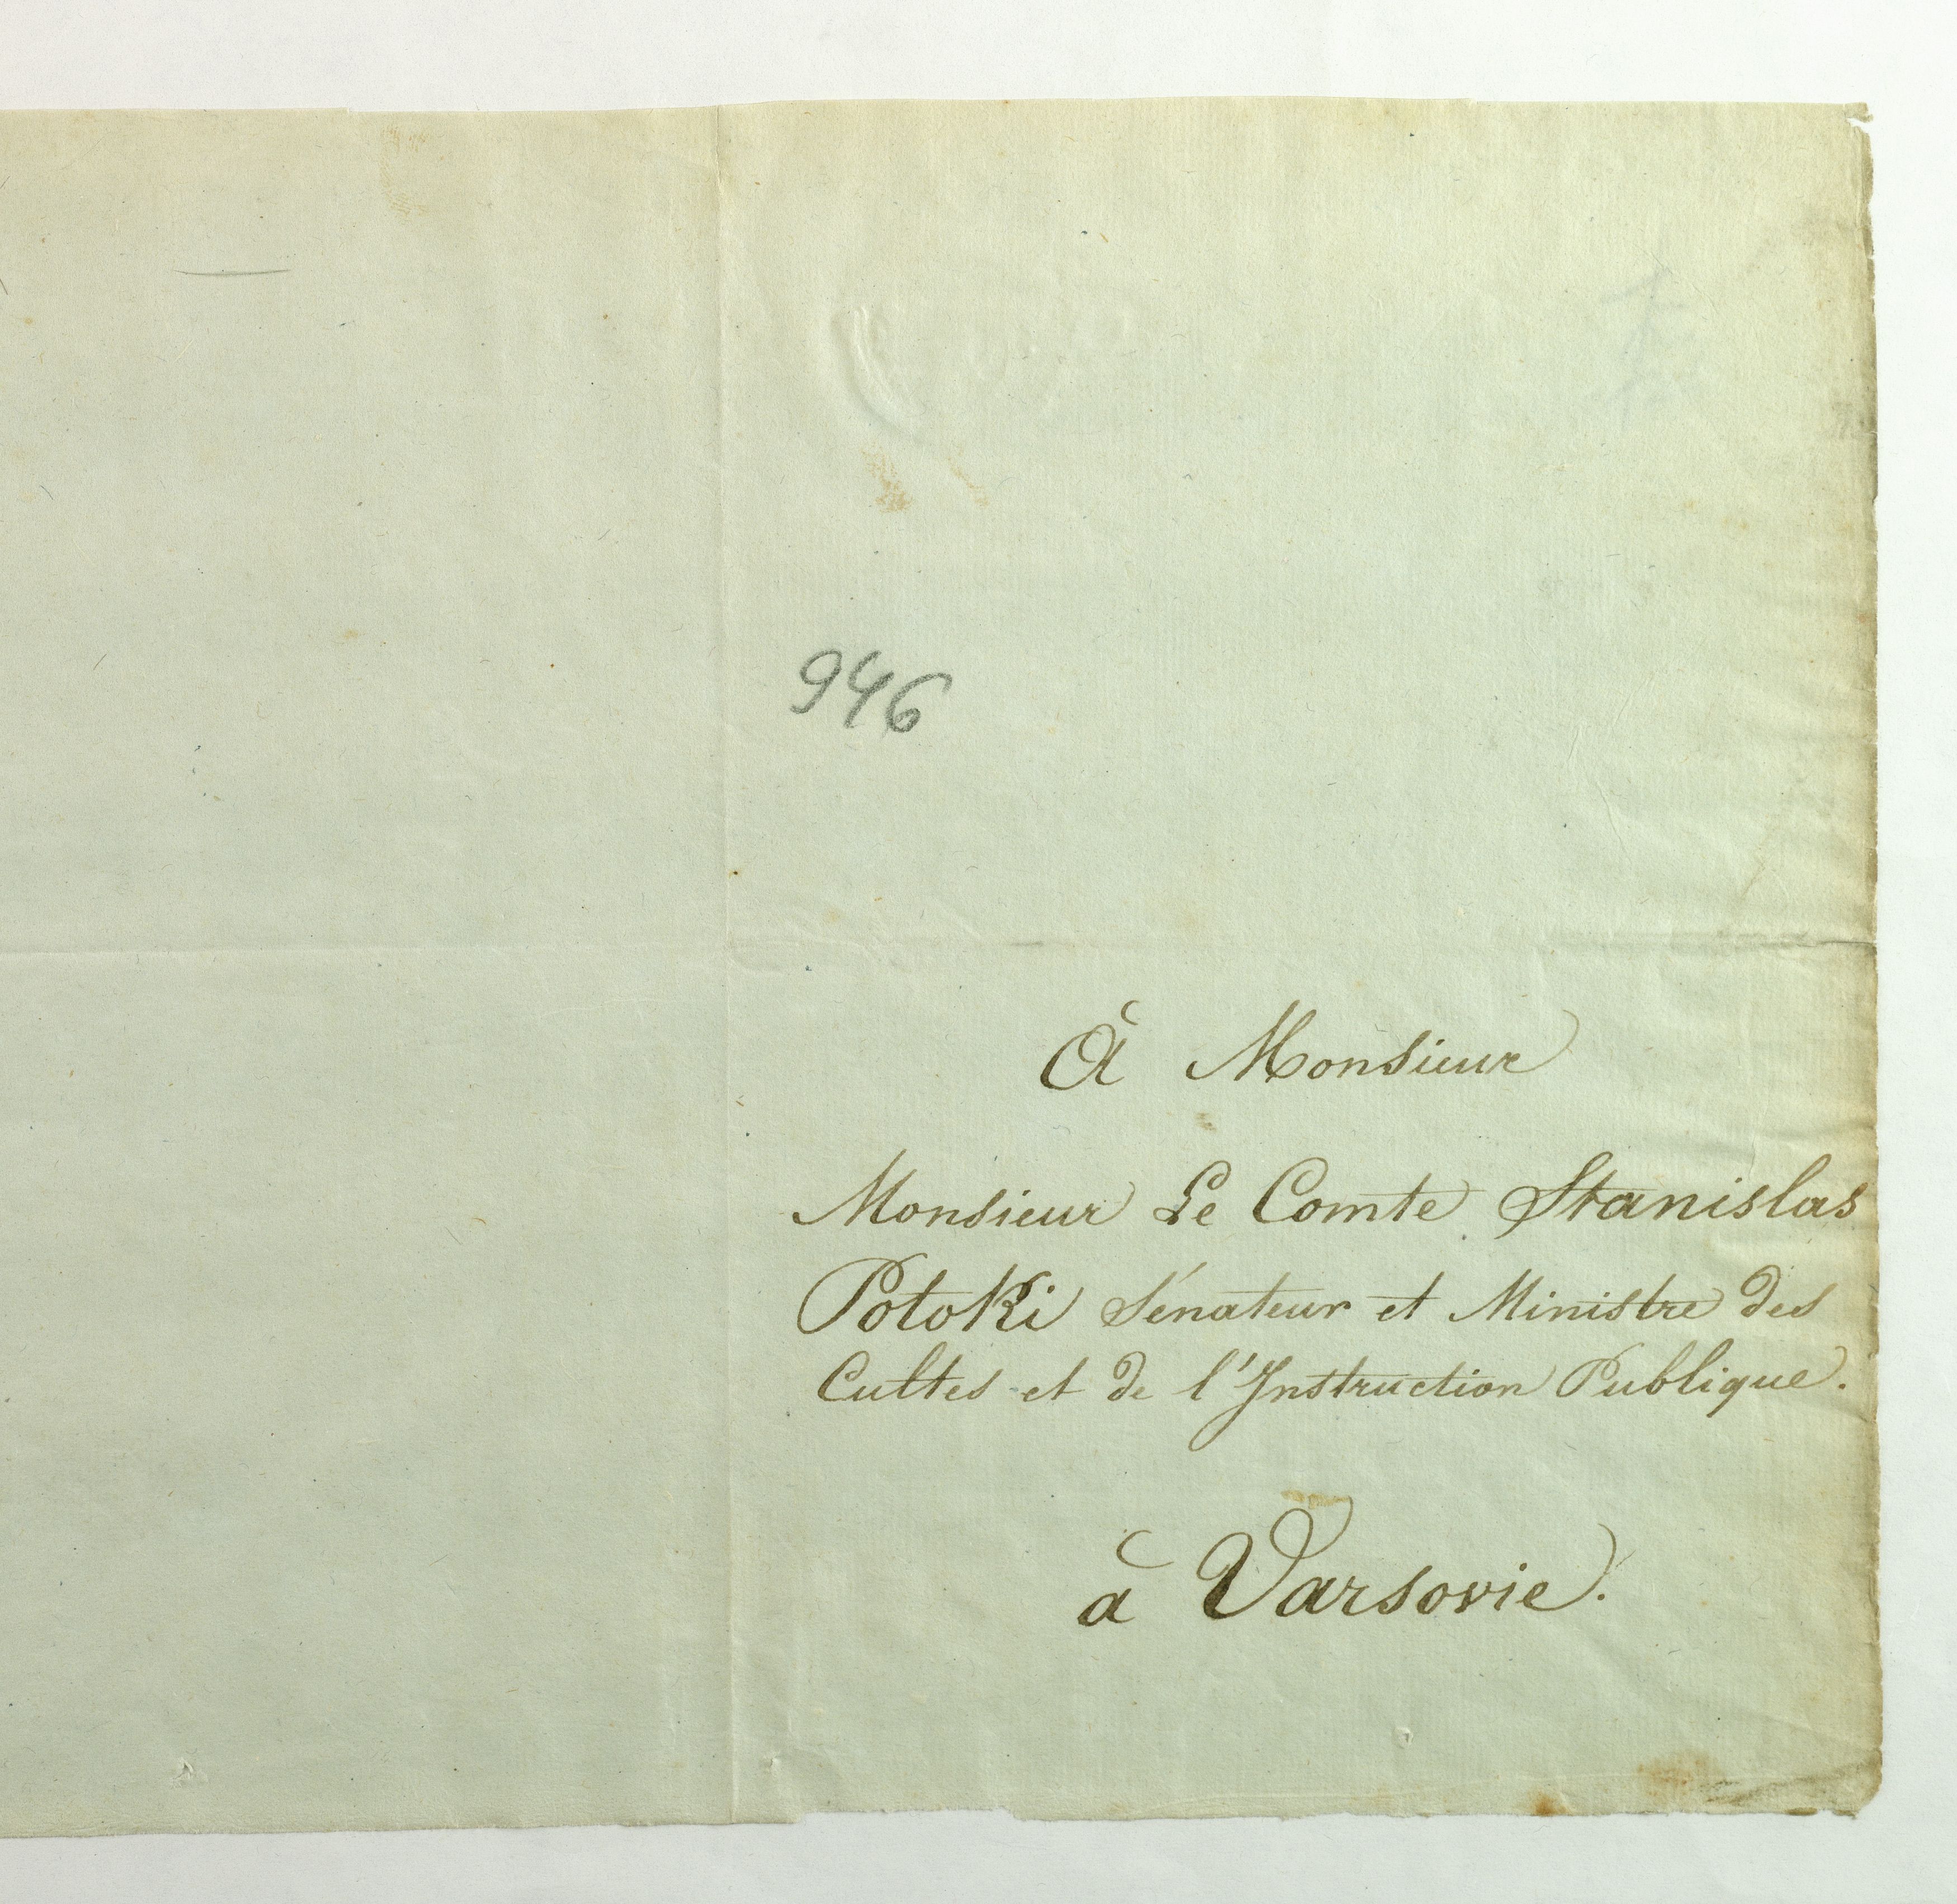 946
À Monsieur
Monsieur Le Comte Stanislas
Potoki Sénateur et Ministre des
Cultes et de l'Instruction Publique.
à Varsovie.